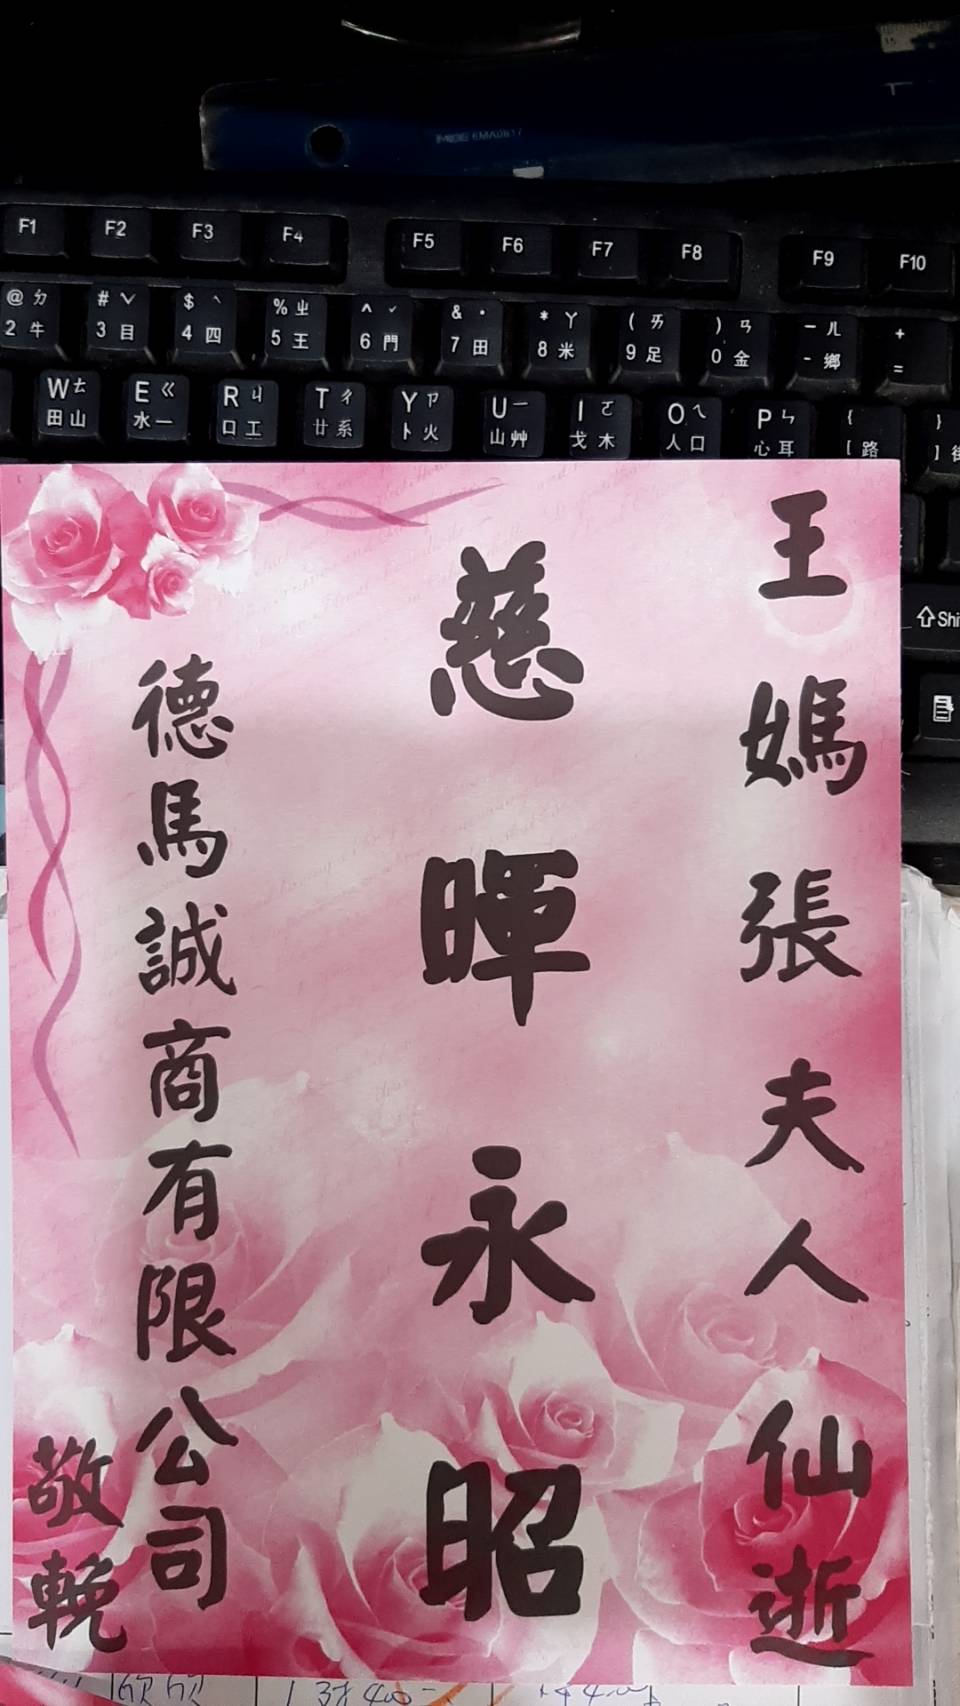 F1 F2 F3 F4 F5 F6 F7 F8 F9 F10
@ ㄉ # ˇ $ ˋ % ㄓ ^ ˊ & ˙ * ㄚ ( ㄞ ) ㄢ － ㄦ +
2 手 3 目 4 四 5 王 6 門 7 田 8 米 9 足 0 金 - 鄉 =
W ㄊ E ㄍ R ㄐ T ㄔ Y ㄗ U ㄧ I ㄛ O ㄟ P ㄣ { }
田 山 水 一 口 工 廿 系 卜 火 山 艸 戈 木 人 口 心 耳 [ 路 ]
⇧Shi
王媽張夫人仙逝
慈暉永昭
德馬誠商有限公司
敬輓